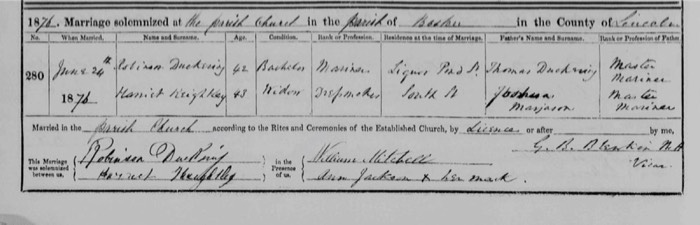 1876. Marriage solemnized at the parish Church in the parish of Boston in the County of Lincoln
No. When Married. Name and Surname. Age. Condition. Rank or Profession. Residence at the time of Marriage. Father's Name and Surname. Rank or Profession of Father
280 June 24th 1876 Robinson Duckering 42 Bachelor Mariner Liquor Pond St Thomas Duckering Master Mariner
Harriet Keightley 43 Widow Dressmaker South St Joshua Marjason Master Mariner
Married in the parish Church according to the Rites and Ceremonies of the Established Church, by Licence or after by me,
G. B. Blenkin M.A Vicar
This Marriage was solemnized between us, Robinson Duckring Harriet Keightley in the Presence of us, William Mitchell Ann Jackson x her mark.